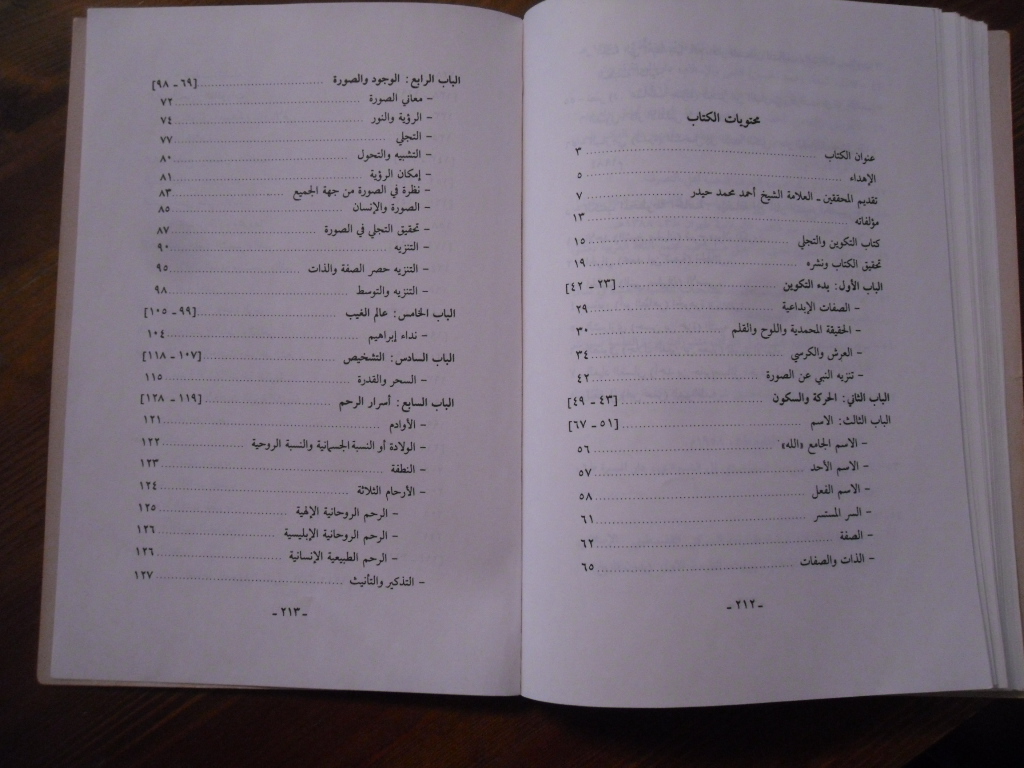 محتويات الكتاب
عنوان الكتاب ٣
الإهداء ٥
تقديم المحققين ـ العلامة الشيخ أحمد محمد حيدر ٧
مؤلفاته ١٣
كتاب التكوين والتجلي ١٥
تحقيق الكتاب ونشره ١٩
الباب الأول: بدء التكوين [٢٣ ـ ٤٢]
– الصفات الإبداعية ٢٩
– الحقيقة المحمدية واللوح والقلم ٣٠
– العرش والكرسي ٣٤
– تنزيه النبي عن الصورة ٤٢
الباب الثاني: الحركة والسكون [٤٣ ـ ٤٩]
الباب الثالث: الاسم [٥١ ـ ٦٧]
– الاسم الجامع «الله» ٥٦
– الاسم الأحد ٥٧
– الاسم الفعل ٥٨
– السر المستسر ٦١
– الصفة ٦٢
– الذات والصفات ٦٥
ـ ٢١٢ ـ
الباب الرابع: الوجود والصورة [٦٩ ـ ٩٨]
– معاني الصورة ٧٢
– الرؤية والنور ٧٤
– التجلي ٧٧
– التشبيه والتحول ٨٠
– إمكان الرؤية ٨١
– نظرة في الصورة من جهة الجميع ٨٣
– الصورة والإنسان ٨٥
– تحقيق التجلي في الصورة ٨٧
– التنزيه ٩٠
– التنزيه حصر الصفة والذات ٩٥
– التنزيه والتوسط ٩٨
الباب الخامس: عالم الغيب [٩٩ ـ ١٠٥]
– نداء إبراهيم ١٠٤
الباب السادس: التشخيص [١٠٧ ـ ١١٨]
– السحر والقدرة ١١٥
الباب السابع: أسرار الرحم [١١٩ ـ ١٢٨]
– الأوادم ١٢١
– الولادة أو النسبة الجسمانية والنسبة الروحية ١٢٢
– النطفة ١٢٣
– الأرحام الثلاثة ١٢٤
– الرحم الروحانية الإلهية ١٢٥
– الرحم الروحانية الإبليسية ١٢٦
– الرحم الطبيعية الإنسانية ١٢٦
– التذكير والتأنيث ١٢٧
ـ ٢١٣ ـ